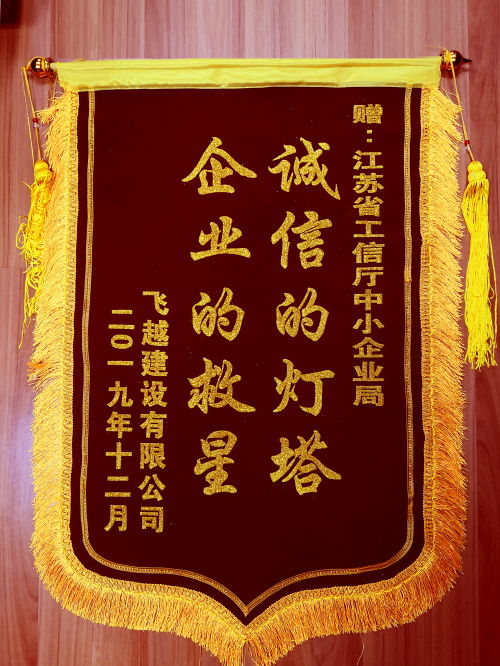 赠：江苏省工信厅中小企业局
诚信的灯塔
企业的救星
飞越建设有限公司
二〇一九年十二月